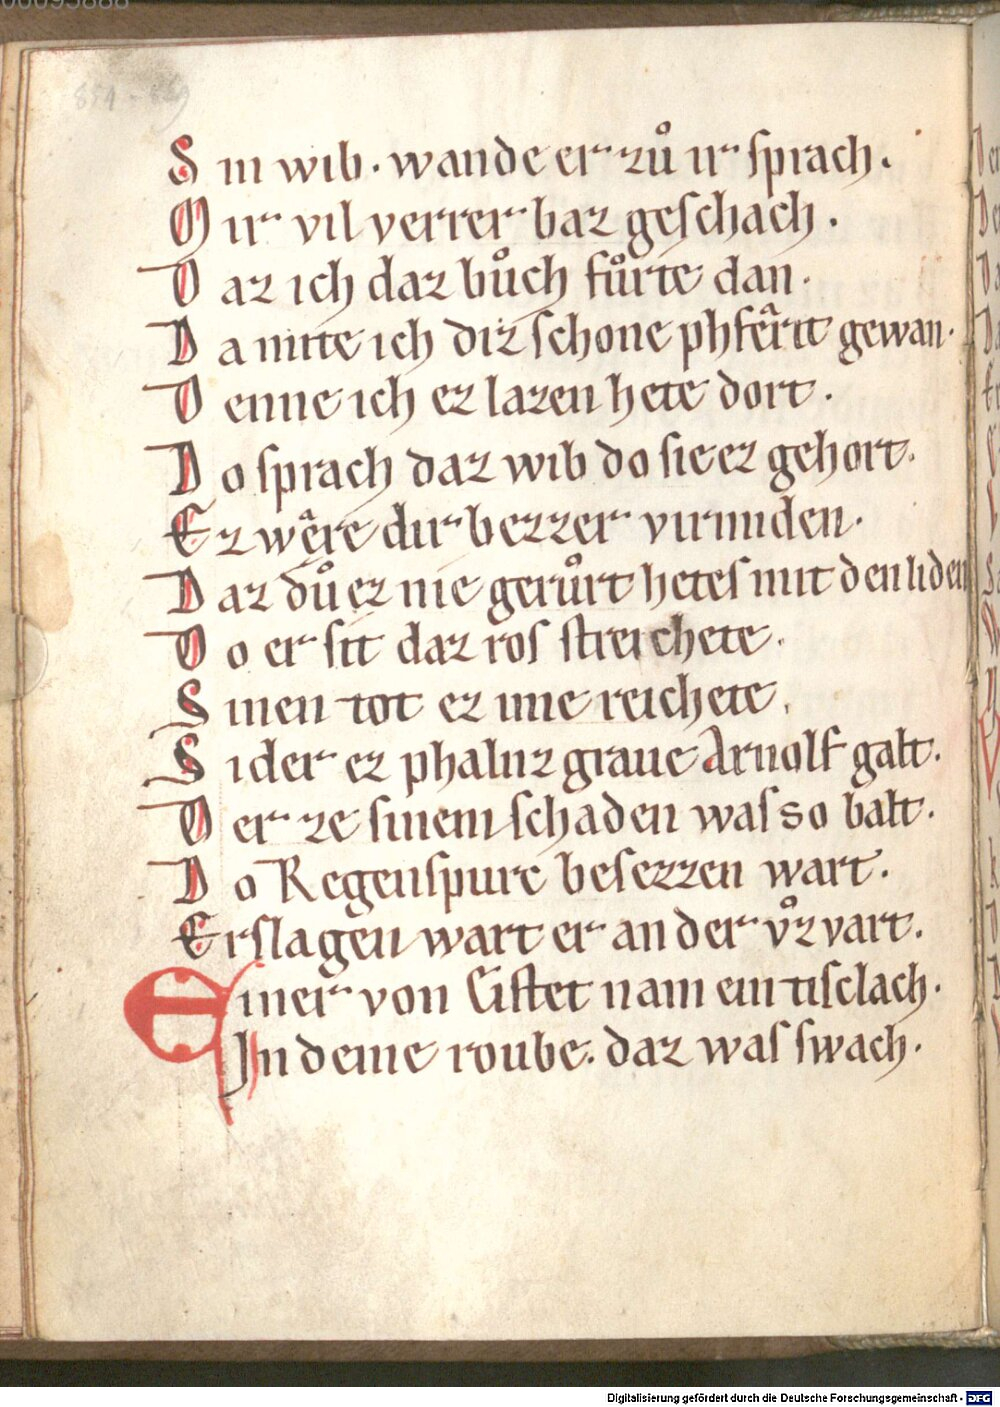 00095888
854 - 869
Sin wib · wande er zuͦ ir sprach.
Mir vil verrer baz geschach.
Daz ich daz buͦch fuͦrte dan.
Da mite ich diz schone phfêrit gewan.
Denne ich ez lazen hete dort.
Do sprach daz wib do sie ez gehort.
Ez wêre dir bezzer virmiden.
Daz duͦ ez nie geruͦrt hetes mit den liden
Do er sit daz ros streichete.
Sinen tot ez ime reichete.
Sider ez phalnz graue Arnolf galt.
Der ze sinem schaden was so balt.
Do Regenspurc besezzen wart.
Erslagen wart er an der vͦz vart.
Einer von Eistet nam ein tisclach.
In deme roube. daz was swach.
Digitalisierung gefördert durch die Deutsche Forschungsgemeinschaft - DFG